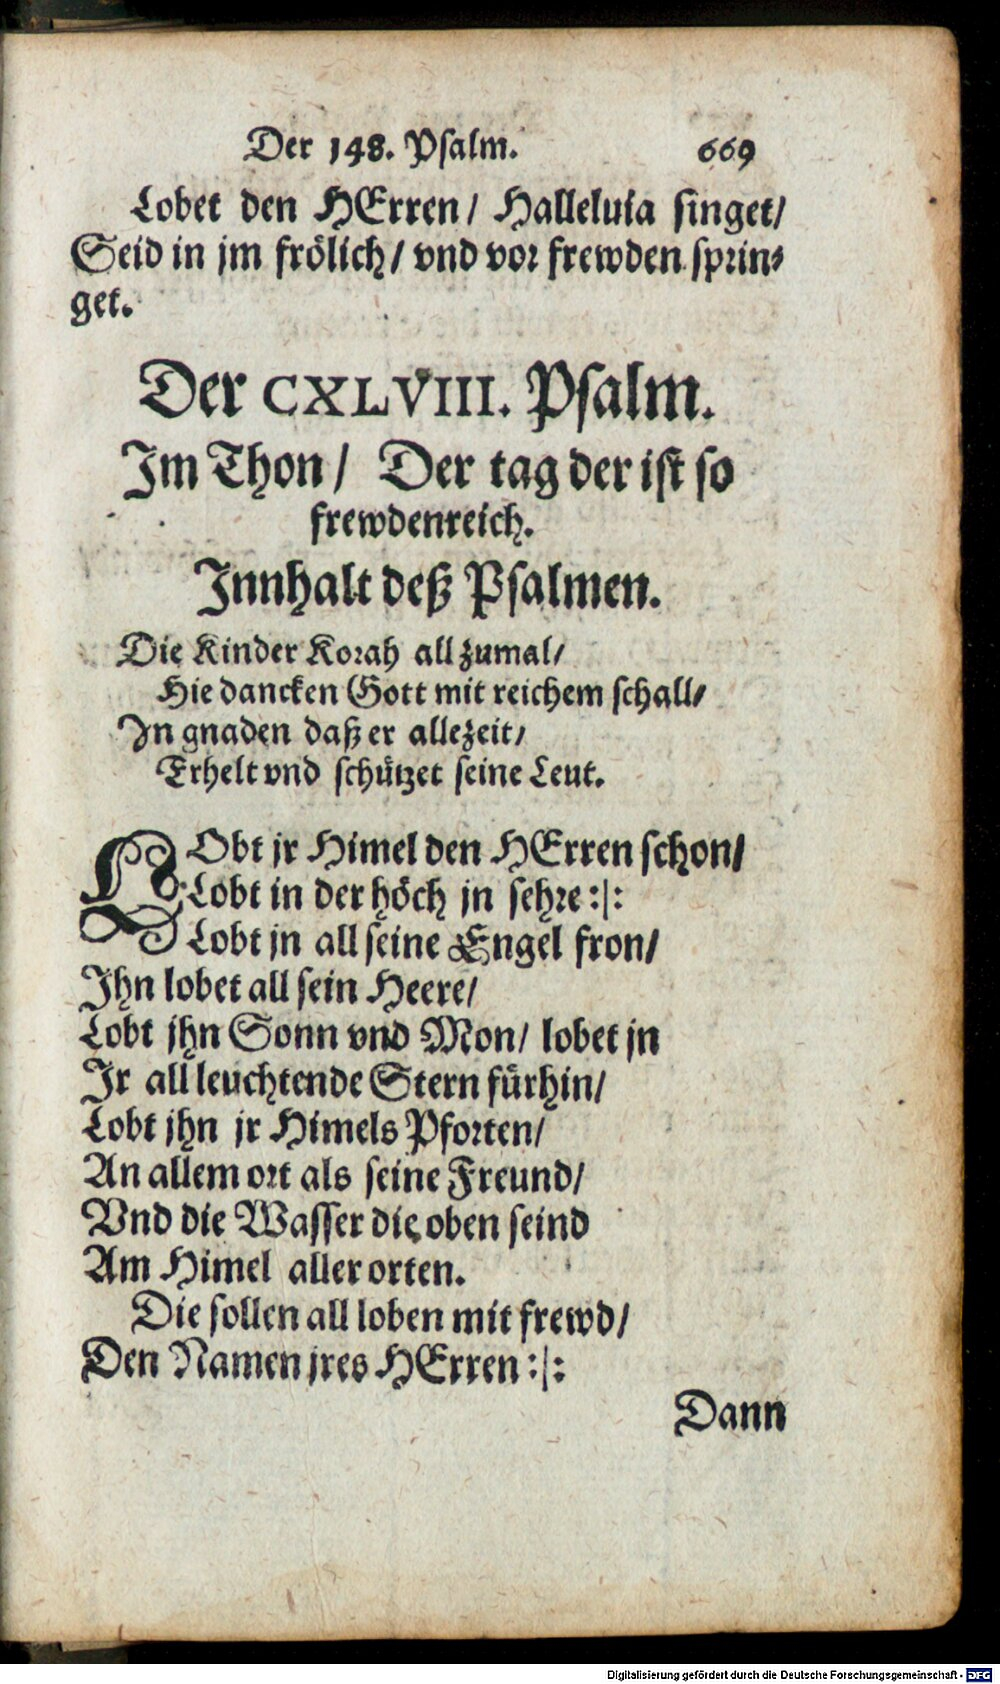 Der 148. Psalm. 669
Lobet den HErren/ Halleluia singet/
Seid in jm frölich/ vnd vor frewden sprin⸗
get.
Der CXLVIII. Psalm.
Im Thon/ Der tag der ist so
frewdenreich.
Innhalt deß Psalmen.
Die Kinder Korah all zumal/
Hie dancken Gott mit reichem schall/
In gnaden daß er allezeit/
Erhelt vnd schützet seine Leut.
LObt jr Himel den HErren schon/
Lobt in der höch jn sehre :|:
Lobt jn all seine Engel fron/
Ihn lobet all sein Heere/
Lobt jhn Sonn vnd Mon/ lobet jn
Ir all leuchtende Stern fürhin/
Lobt jhn jr Himels Pforten/
An allem ort als seine Freund/
Vnd die Wasser die oben seind
Am Himel aller orten.
Die sollen all loben mit frewd/
Den Namen jres HErren :|:
Dann
Digitalisierung gefördert durch die Deutsche Forschungsgemeinschaft - DFG